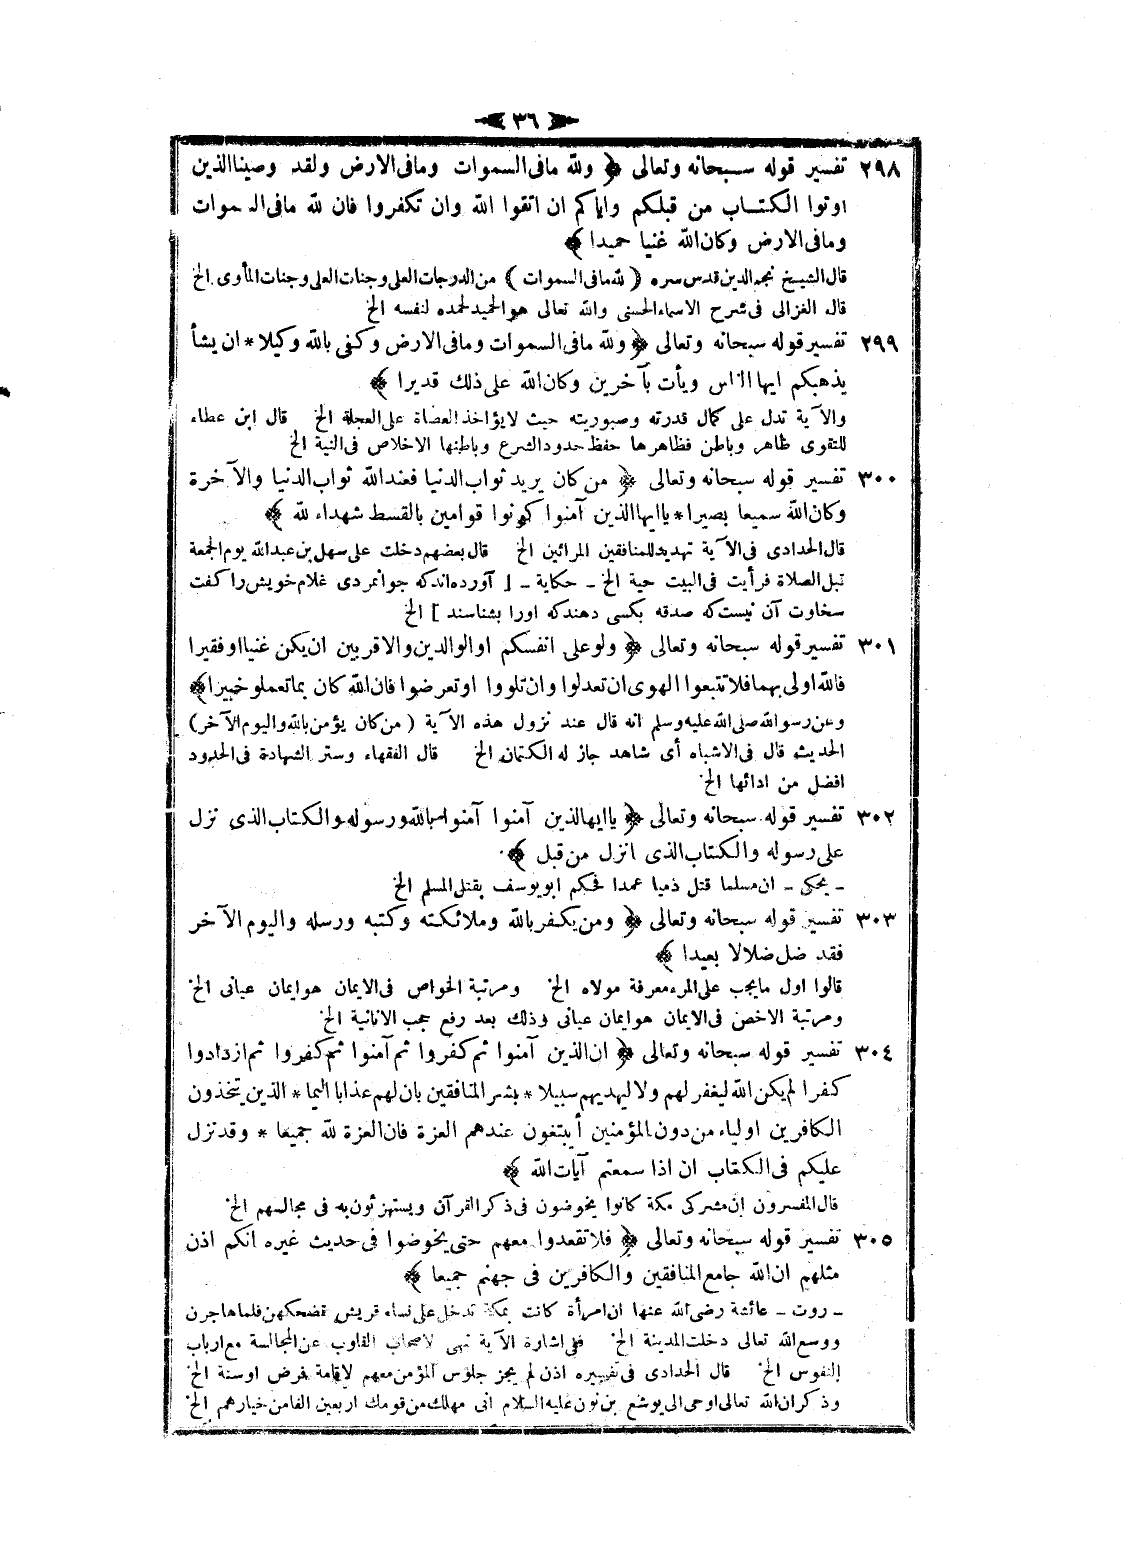 ٣٦
٢٩٨ تفسير قوله سبحانه وتعالى ﴿ ولله مافى السموات ومافى الارض ولقد وصينا الذين
اوتوا الكتاب من قبلكم واياكم ان اتقوا الله وان تكفروا فان لله مافى السموات
ومافى الارض وكان الله غنيا حميدا ﴾
قال الشيخ نجم الدين قدس سره ( لله مافى السموات ) من الدرجات العلى وجنات العلى وجنات المأوى الخ
قال الغزالى فى شرح الاسماء الحسنى والله تعالى هو الحميد لحمده لنفسه الخ
٢٩٩ تفسير قوله سبحانه وتعالى ﴿ ولله مافى السموات ومافى الارض وكفى بالله وكيلا * ان يشأ
يذهبكم ايها الناس ويأت بآخرين وكان الله على ذلك قديرا ﴾
والآية تدل على كمال قدرته وصبوريته حيث لا يؤاخذ العصاة على العجلة الخ قال ابن عطاء
للتقوى ظاهر وباطن فظاهرها حفظ حدود الشرع وباطنها الاخلاص فى النية الخ
٣٠٠ تفسير قوله سبحانه وتعالى ﴿ من كان يريد ثواب الدنيا فعند الله ثواب الدنيا والآخرة
وكان الله سميعا بصيرا * يا ايها الذين آمنوا كونوا قوامين بالقسط شهداء لله ﴾
قال الحدادى فى الآية تهديد للمنافقين المرائين الخ قال بعضهم دخلت على سهل بن عبدالله يوم الجمعة
قبل الصلاة فرأيت فى البيت حية الخ - حكاية - [ آورده اند كه جوانمردى غلام خويش را كفت
سخاوت آن نيست كه صدقه بكسى دهند كه اورا بشناسند ] الخ
٣٠١ تفسير قوله سبحانه وتعالى ﴿ ولو على انفسكم او الوالدين والاقربين ان يكن غنيا او فقيرا
فالله اولى بهما فلا تتبعوا الهوى ان تعدلوا وان تلووا او تعرضوا فان الله كان بما تعملو خبيرا ﴾
وعن رسو الله صلى الله عليه وسلم انه قال عند نزول هذه الآية ( من كان يؤمن بالله واليوم الآخر )
الحديث قال فى الاشباه أى شاهد جاز له الكتمان الخ قال الفقهاء وستر الشهادة فى الحدود
افضل من ادائها الخ
٣٠٢ تفسير قوله سبحانه وتعالى ﴿ يا ايها الذين آمنوا آمنوا بالله ورسوله والكتاب الذى نزل
على رسوله والكتاب الذى انزل من قبل ﴾
- يحكى - ان مسلما قتل ذميا عمدا فحكم ابو يوسف بقتل المسلم الخ
٣٠٣ تفسير قوله سبحانه وتعالى ﴿ ومن يكفر بالله وملائكته وكتبه ورسله واليوم الآخر
فقد ضل ضلالا بعيدا ﴾
قالوا اول مايجب على المرء معرفة مولاه الخ ومرتبة الخواص فى الايمان هو ايمان عيانى الخ
ومرتبة الاخص فى الايمان هو ايمان عيانى وذلك بعد رفع حجب الانانية الخ
٣٠٤ تفسير قوله سبحانه وتعالى ﴿ ان الذين آمنوا ثم كفروا ثم آمنوا ثم كفروا ثم ازدادوا
كفرا لم يكن الله ليغفر لهم ولا ليهديهم سبيلا * بشر المنافقين بان لهم عذابا اليما * الذين يتخذون
الكافرين اولياء من دون المؤمنين أيبتغون عندهم العزة فان العزة لله جميعا * وقد نزل
عليكم فى الكتاب ان اذا سمعتم آيات الله ﴾
قال المفسرون ان مشركى مكة كانوا يخوضون فى ذكر القرآن ويستهزئون به فى مجالسهم الخ
٣٠٥ تفسير قوله سبحانه وتعالى ﴿ فلا تقعدوا معهم حتى يخوضوا فى حديث غيره انكم اذن
مثلهم ان الله جامع المنافقين والكافرين فى جهنم جميعا ﴾
- روت - عائشة رضى الله عنها ان امرأة كانت بمكة تدخل على نساء قريش تضحكهن فلما هاجرن
ووسع الله تعالى دخلت المدينة الخ ففى اشارة الآية نهى لاصحاب القلوب عن المجالسة مع ارباب
النفوس الخ قال الحدادى فى تفسيره اذن لم يجز جلوس المؤمن معهم لاقامة فرض اوسنة الخ
وذكر ان الله تعالى اوحى الى يوشع بن نون عليه السلام انى مهلك من قومك اربعين الفا من خيارهم الخ